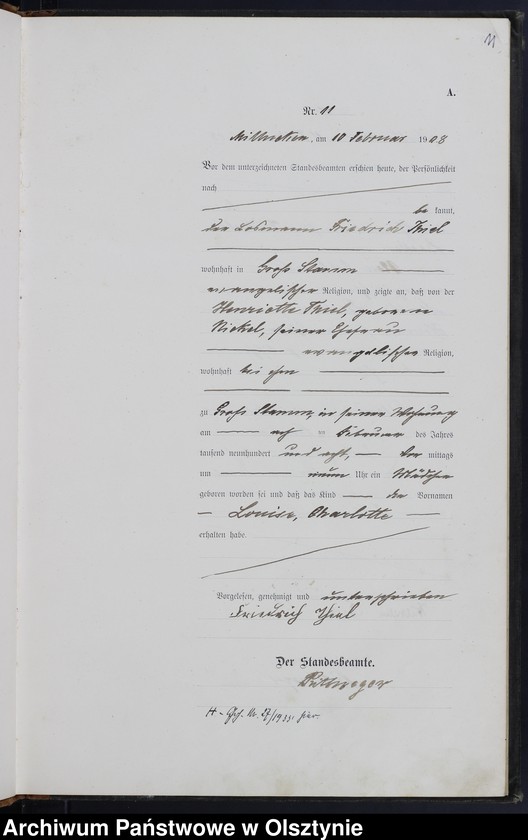 11
A.
Nr. 11
am 10 Februar 1908
Vor dem unterzeichneten Standesbeamten erschien heute, der Persönlichkeit
nach
be kannt,
der Losmann Friedrich Thiel
wohnhaft in Groß Stamm
evangelischer Religion, und zeigte an, daß von der
Henriette Thiel, geborenen
Nickel, seiner Ehefrau
evangelischer Religion,
wohnhaft bei ihm
zu Groß Stamm, in seiner Wohnung
am acht en Februar des Jahres
tausend neunhundert und acht, Vor mittags
um neun Uhr ein Mädchen
geboren worden sei und daß das Kind die Vornamen
Louise, Charlotte
erhalten habe.
Vorgelesen, genehmigt und unterschrieben
Friedrich Thiel
Der Standesbeamte.
H - Gesch. Nr. 27/1933. hier.
Archiwum Państwowe w Olsztynie